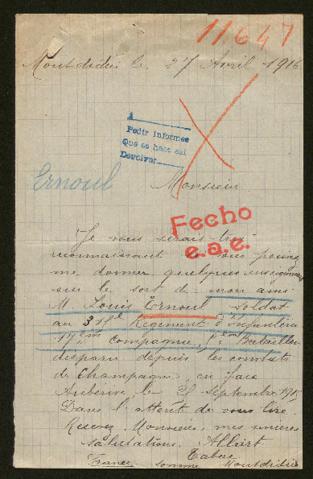 11647
Montdidier le, 27 Avril 1916
A
Pedir informes
Que se hace así
Devolver
Ernoul
Monsieur
Fecho
e.a.e.
Je vous serais très
reconnaissant vous
me donner quelques renseignements
sur le sort de mon ami
M. Louis Ernoul soldat
au 31 Regiment d'Infanterie
Compagnie, Bataillon
disparu depuis les combats
de Champagne, en face
Auberive le 25 Septembre 1915
Dans l'attent de vous lire
Recevez, Monsieur, mes sincères
salutations. Allart
Tabac
France Somme Montdidier